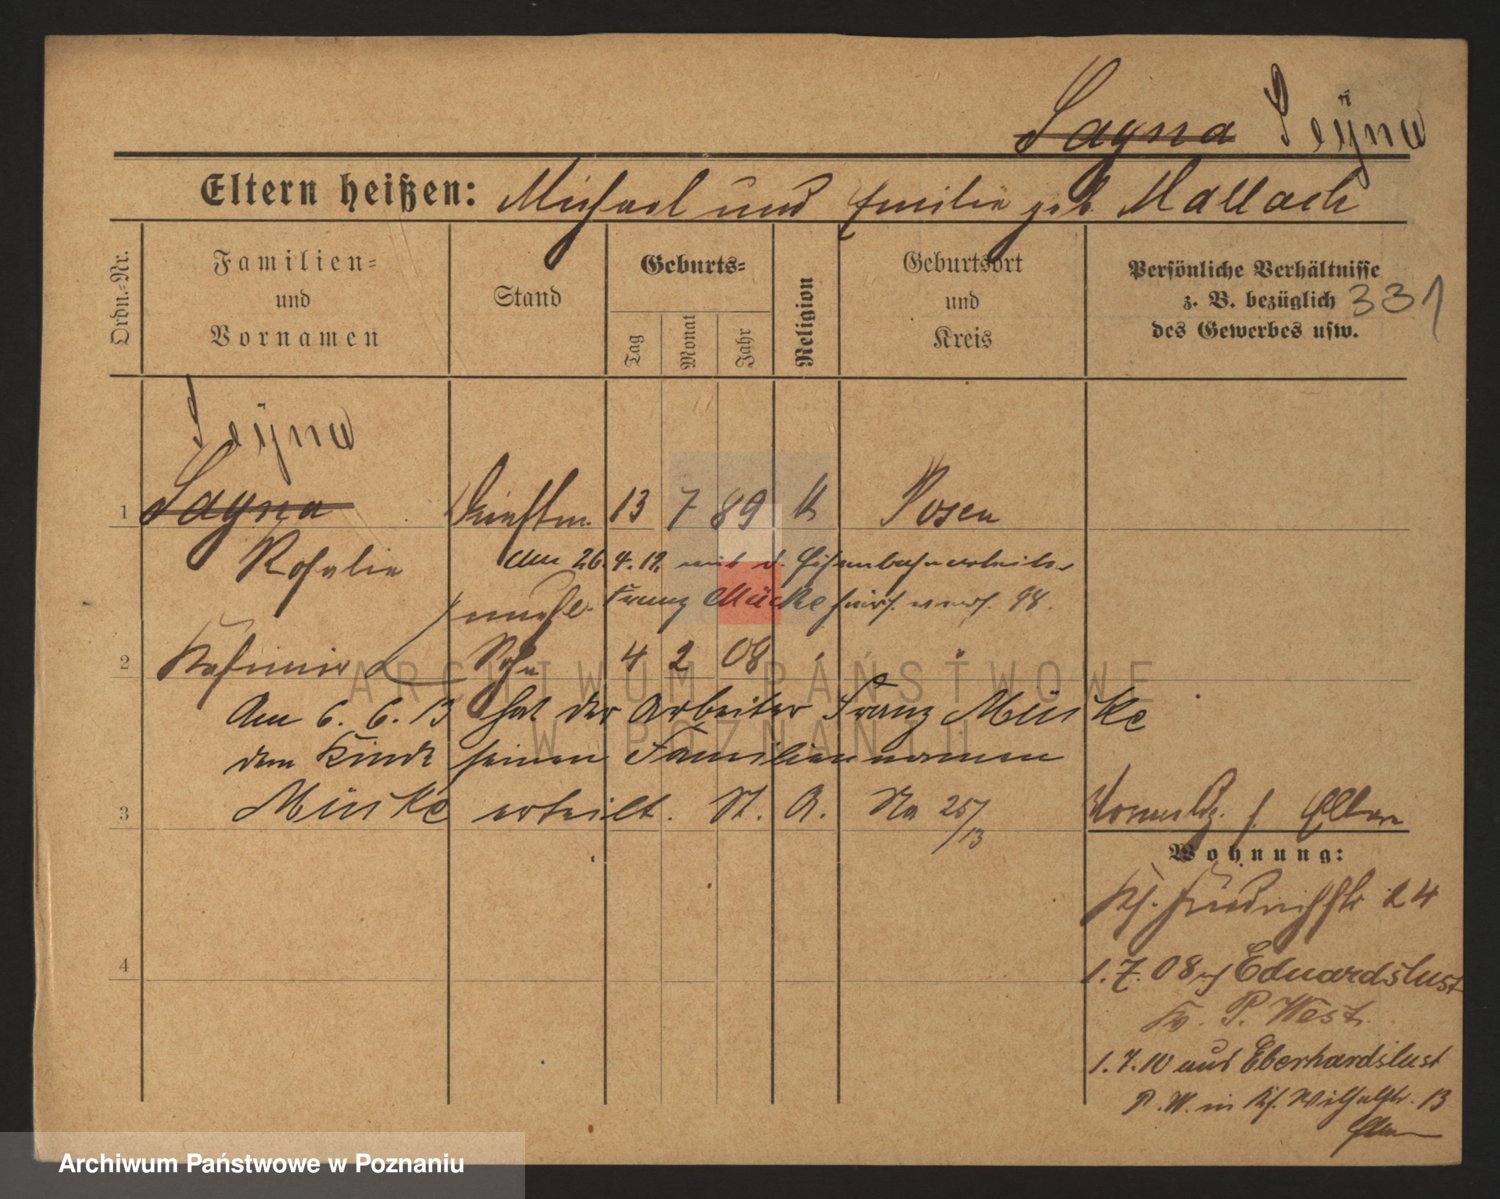 Sayna Seÿna
Eltern heißen: Michael und Emilie geb. Mallach
Ordn.-Nr.
Familien-
und
Vornamen
Stand
Geburts-
Tag
Monat
Jahr
Religion
Geburtsort
und
Kreis
Persönliche Verhältnisse
z. B. bezüglich
des Gewerbes usw.
331
Seÿna
1 Sayna 13 7 89 k Posen
Rosalie am 26. 4. 12 mit d. Eisenbahnarbeiter
Franz Mücke 98.
unehl.
2 Kasimir Sohn 4 2 08
Am 6. 6. 13 hat der Arbeiter Franz Mücke
dem Kinde seinen Familiennamen
3 Mücke erteilt. St. A. No 25/13
f. Eltern
Wohnung:
24
4
1. 7. 08 Eduardslust
Kr. P. West.
1. 7. 10 aus Eberhardslust
P. W. in 13
ARCHIWUM PAŃSTWOWE
W POZNANIU
Archiwum Państwowe w Poznaniu